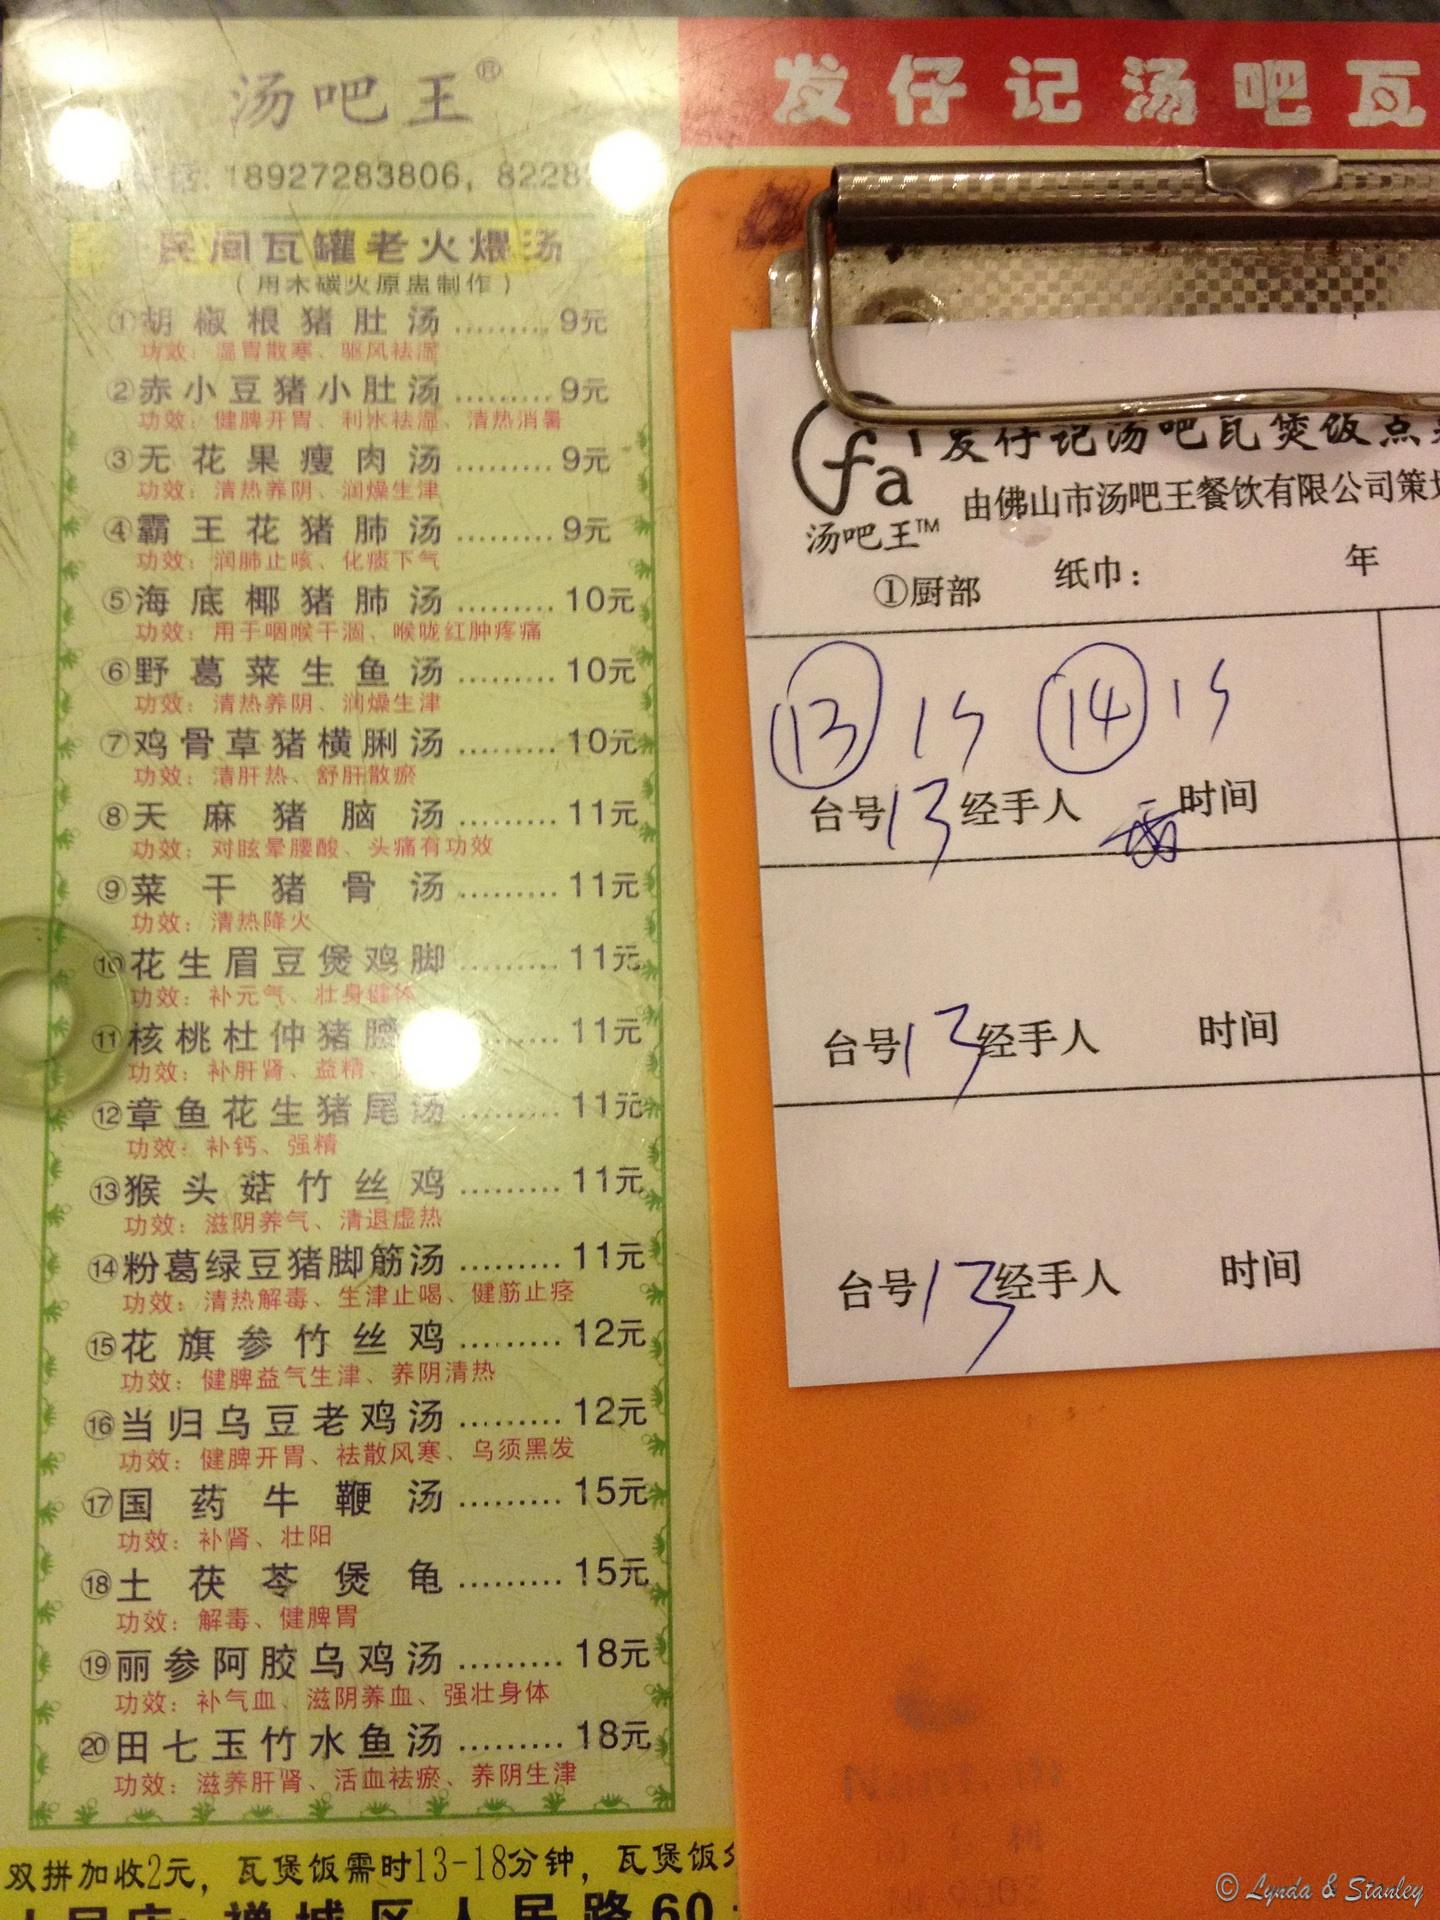 汤吧王®
18927283806, 8228
民间瓦罐老火煨汤
(用木碳火原盅制作)
①胡椒根猪肚汤.........9元
功效：温胃散寒、驱风祛湿
②赤小豆猪小肚汤.........9元
功效：健脾开胃、利水祛湿、清热消暑
③无花果瘦肉汤.........9元
功效：清热养阴、润燥生津
④霸王花猪肺汤.........9元
功效：润肺止咳、化痰下气
⑤海底椰猪肺汤.........10元
功效：用于咽喉干涸、喉咙红肿疼痛
⑥野葛菜生鱼汤.........10元
功效：清热养阴、润燥生津
⑦鸡骨草猪横脷汤.........10元
功效：清肝热、舒肝散瘀
⑧天麻猪脑汤.........11元
功效：对眩晕腰酸、头痛有功效
⑨菜干猪骨汤.........11元
功效：清热降火
⑩花生眉豆煲鸡脚.........11元
功效：补元气、壮身健体
⑪核桃杜仲猪腰 11元
功效：补肝肾、益精、
⑫章鱼花生猪尾汤.........11元
功效：补钙、强精
⑬猴头菇竹丝鸡.........11元
功效：滋阴养气、清退虚热
⑭粉葛绿豆猪脚筋汤.........11元
功效：清热解毒、生津止喝、健筋止痉
⑮花旗参竹丝鸡.........12元
功效：健脾益气生津、养阴清热
⑯当归乌豆老鸡汤.........12元
功效：健脾开胃、祛散风寒、乌须黑发
⑰国药牛鞭汤.........15元
功效：补肾、壮阳
⑱土茯苓煲龟.........15元
功效：解毒、健脾胃
⑲丽参阿胶乌鸡汤.........18元
功效：补气血、滋阴养血、强壮身体
⑳田七玉竹水鱼汤.........18元
功效：滋养肝肾、活血祛瘀、养阴生津
双拼加收2元，瓦煲饭需时13-18分钟，瓦煲饭
禅城区人民路60
发仔记汤吧瓦
fa'
发仔记汤吧瓦煲饭点
汤吧王™
由佛山市汤吧王餐饮有限公司策划
①厨部 纸巾： 年
⑬ 1 ⑭ 1
台号13经手人 时间
台号13经手人 时间
台号13经手人 时间
© Lynda & Stanley